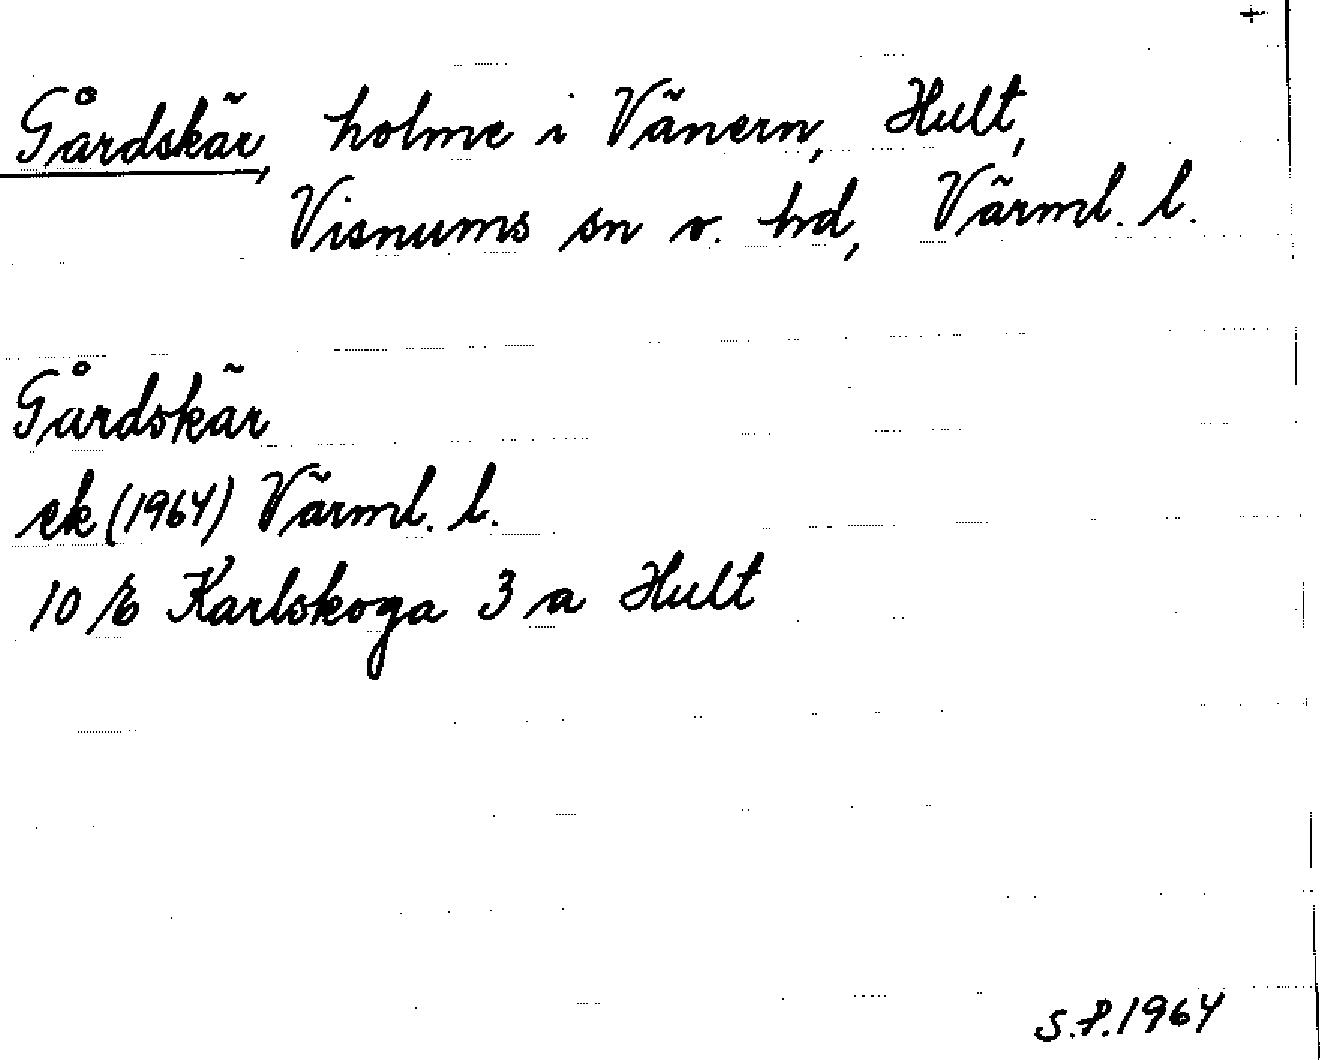 Gårdskär, holme i Vänern, Hult,
Visnums sn o. hd, Värml. l.
Gårdskär
ek (1964) Värml. l.
10 E Karlskoga 3 a Hult
S.P. 1964